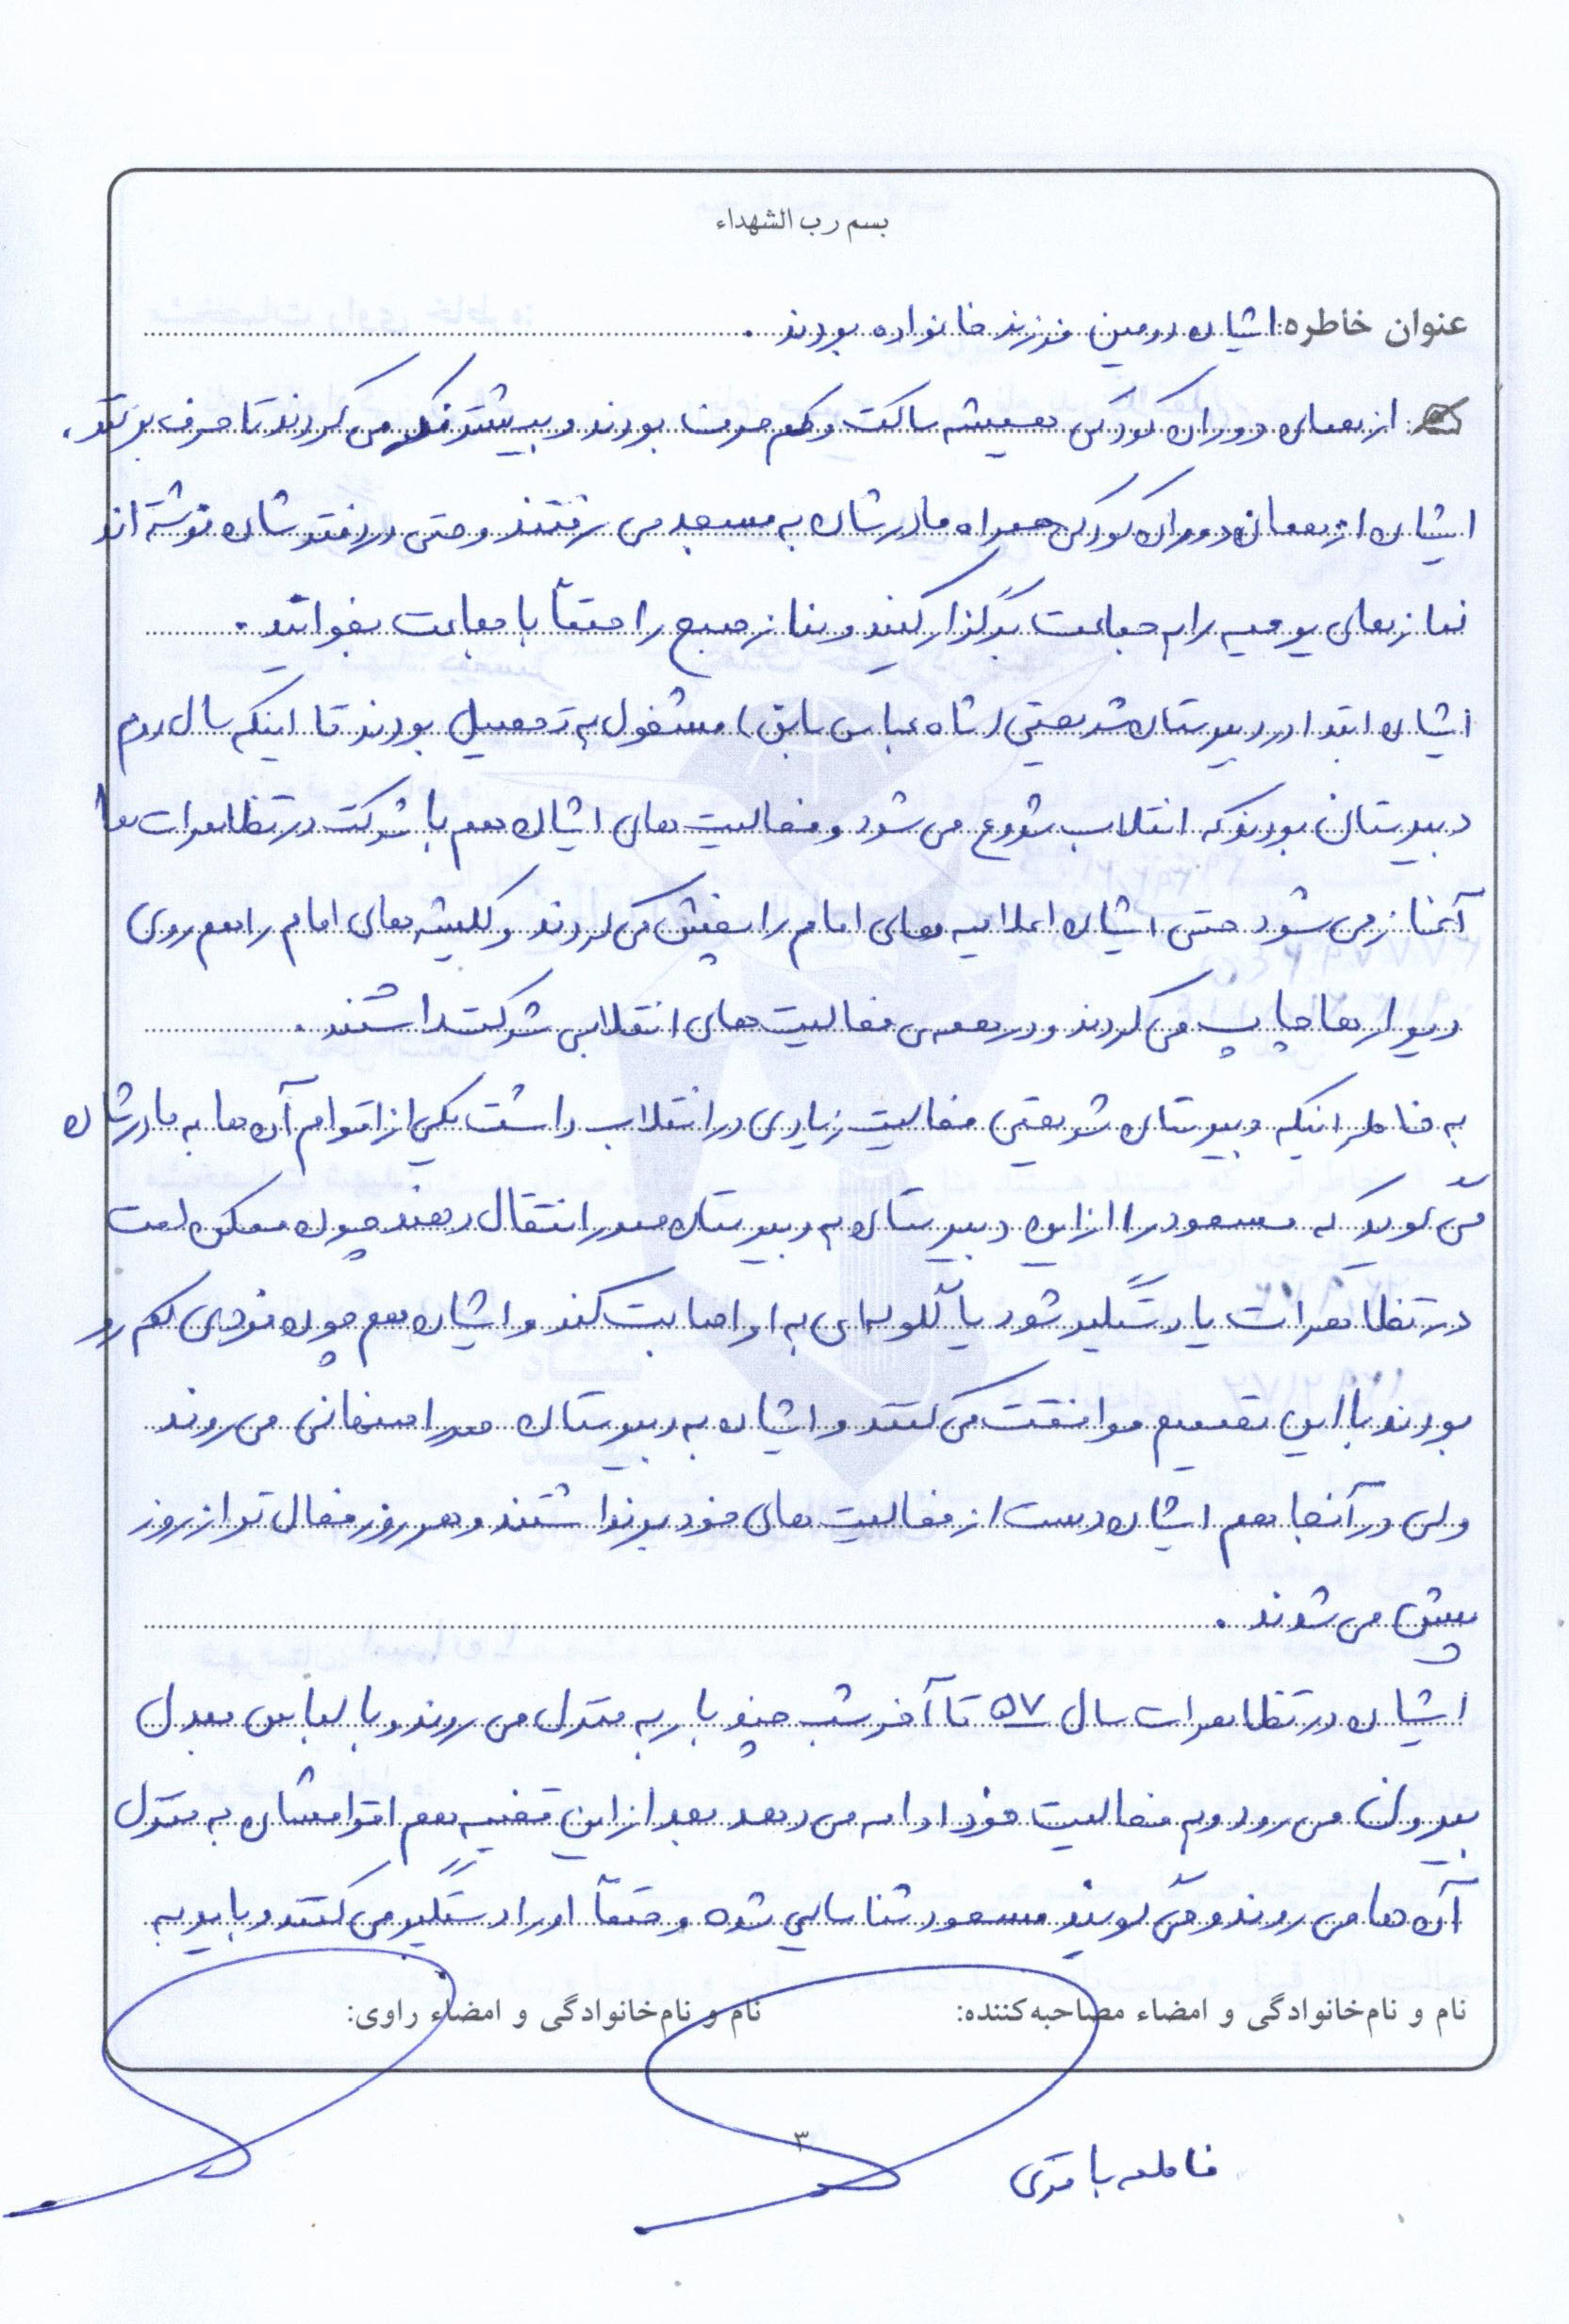 بسم رب الشهداء
عنوان خاطره: ایشان دومین فرزند خانواده بودند .
از همان دوران کودکی همیشه ساکت و کم حرف بودند و بیشتر فکر می کردند تا حرف بزنند .
ایشان از همان دوران کودکی همراه مادرشان به مسجد می رفتند و حتی در دفترشان نوشته اند
نمازهای یومیه را به جماعت برگزار کنید و نماز صبح را حتماً با جماعت بخوانید .
ایشان ابتدا در دبیرستان شریعتی (شاه عباس سابق) مشغول به تحصیل بودند تا اینکه سال دوم
دبیرستان بودند که انقلاب شروع می شود و فعالیت های ایشان هم با شرکت در تظاهرات ها
آغاز می شود حتی ایشان اعلامیه های امام را پخش می کردند و کلیشه های امام را هم روی
دیوارها چاپ می کردند و در همه ی فعالیت های انقلابی شرکت داشتند .
به خاطر اینکه دبیرستان شریعتی فعالیت زیادی در انقلاب داشت یکی از اقوام آن ها به مادرشان
می گوید که مسعود را از این دبیرستان به دبیرستان صدر انتقال دهند چون ممکن است
در تظاهرات یا دستگیر شود یا گلوله ای به او اصابت کند و ایشان هم چون فردی کم رو
بودند با این تصمیم موافقت می کنند و ایشان به دبیرستان صدر اصفهانی می روند
ولی در آنجا هم ایشان دست از فعالیت های خود برنداشتند و هر روز فعال تر از روز
پیش می شوند .
ایشان در تظاهرات سال ۵۷ تا آخر شب چند بار به منزل می روند و با لباس مبدل
بیرون می رود و به فعالیت خود ادامه می دهد بعد از این قضیه هم اقوامشان به منزل
آن ها می روند و می گویند مسعود شناسایی شده و حتماً او را دستگیر می کنند و باید به
نام و نام‌خانوادگی و امضاء مصاحبه‌کننده: نام و نام‌خانوادگی و امضاء راوی:
۳
فاطمه باقری